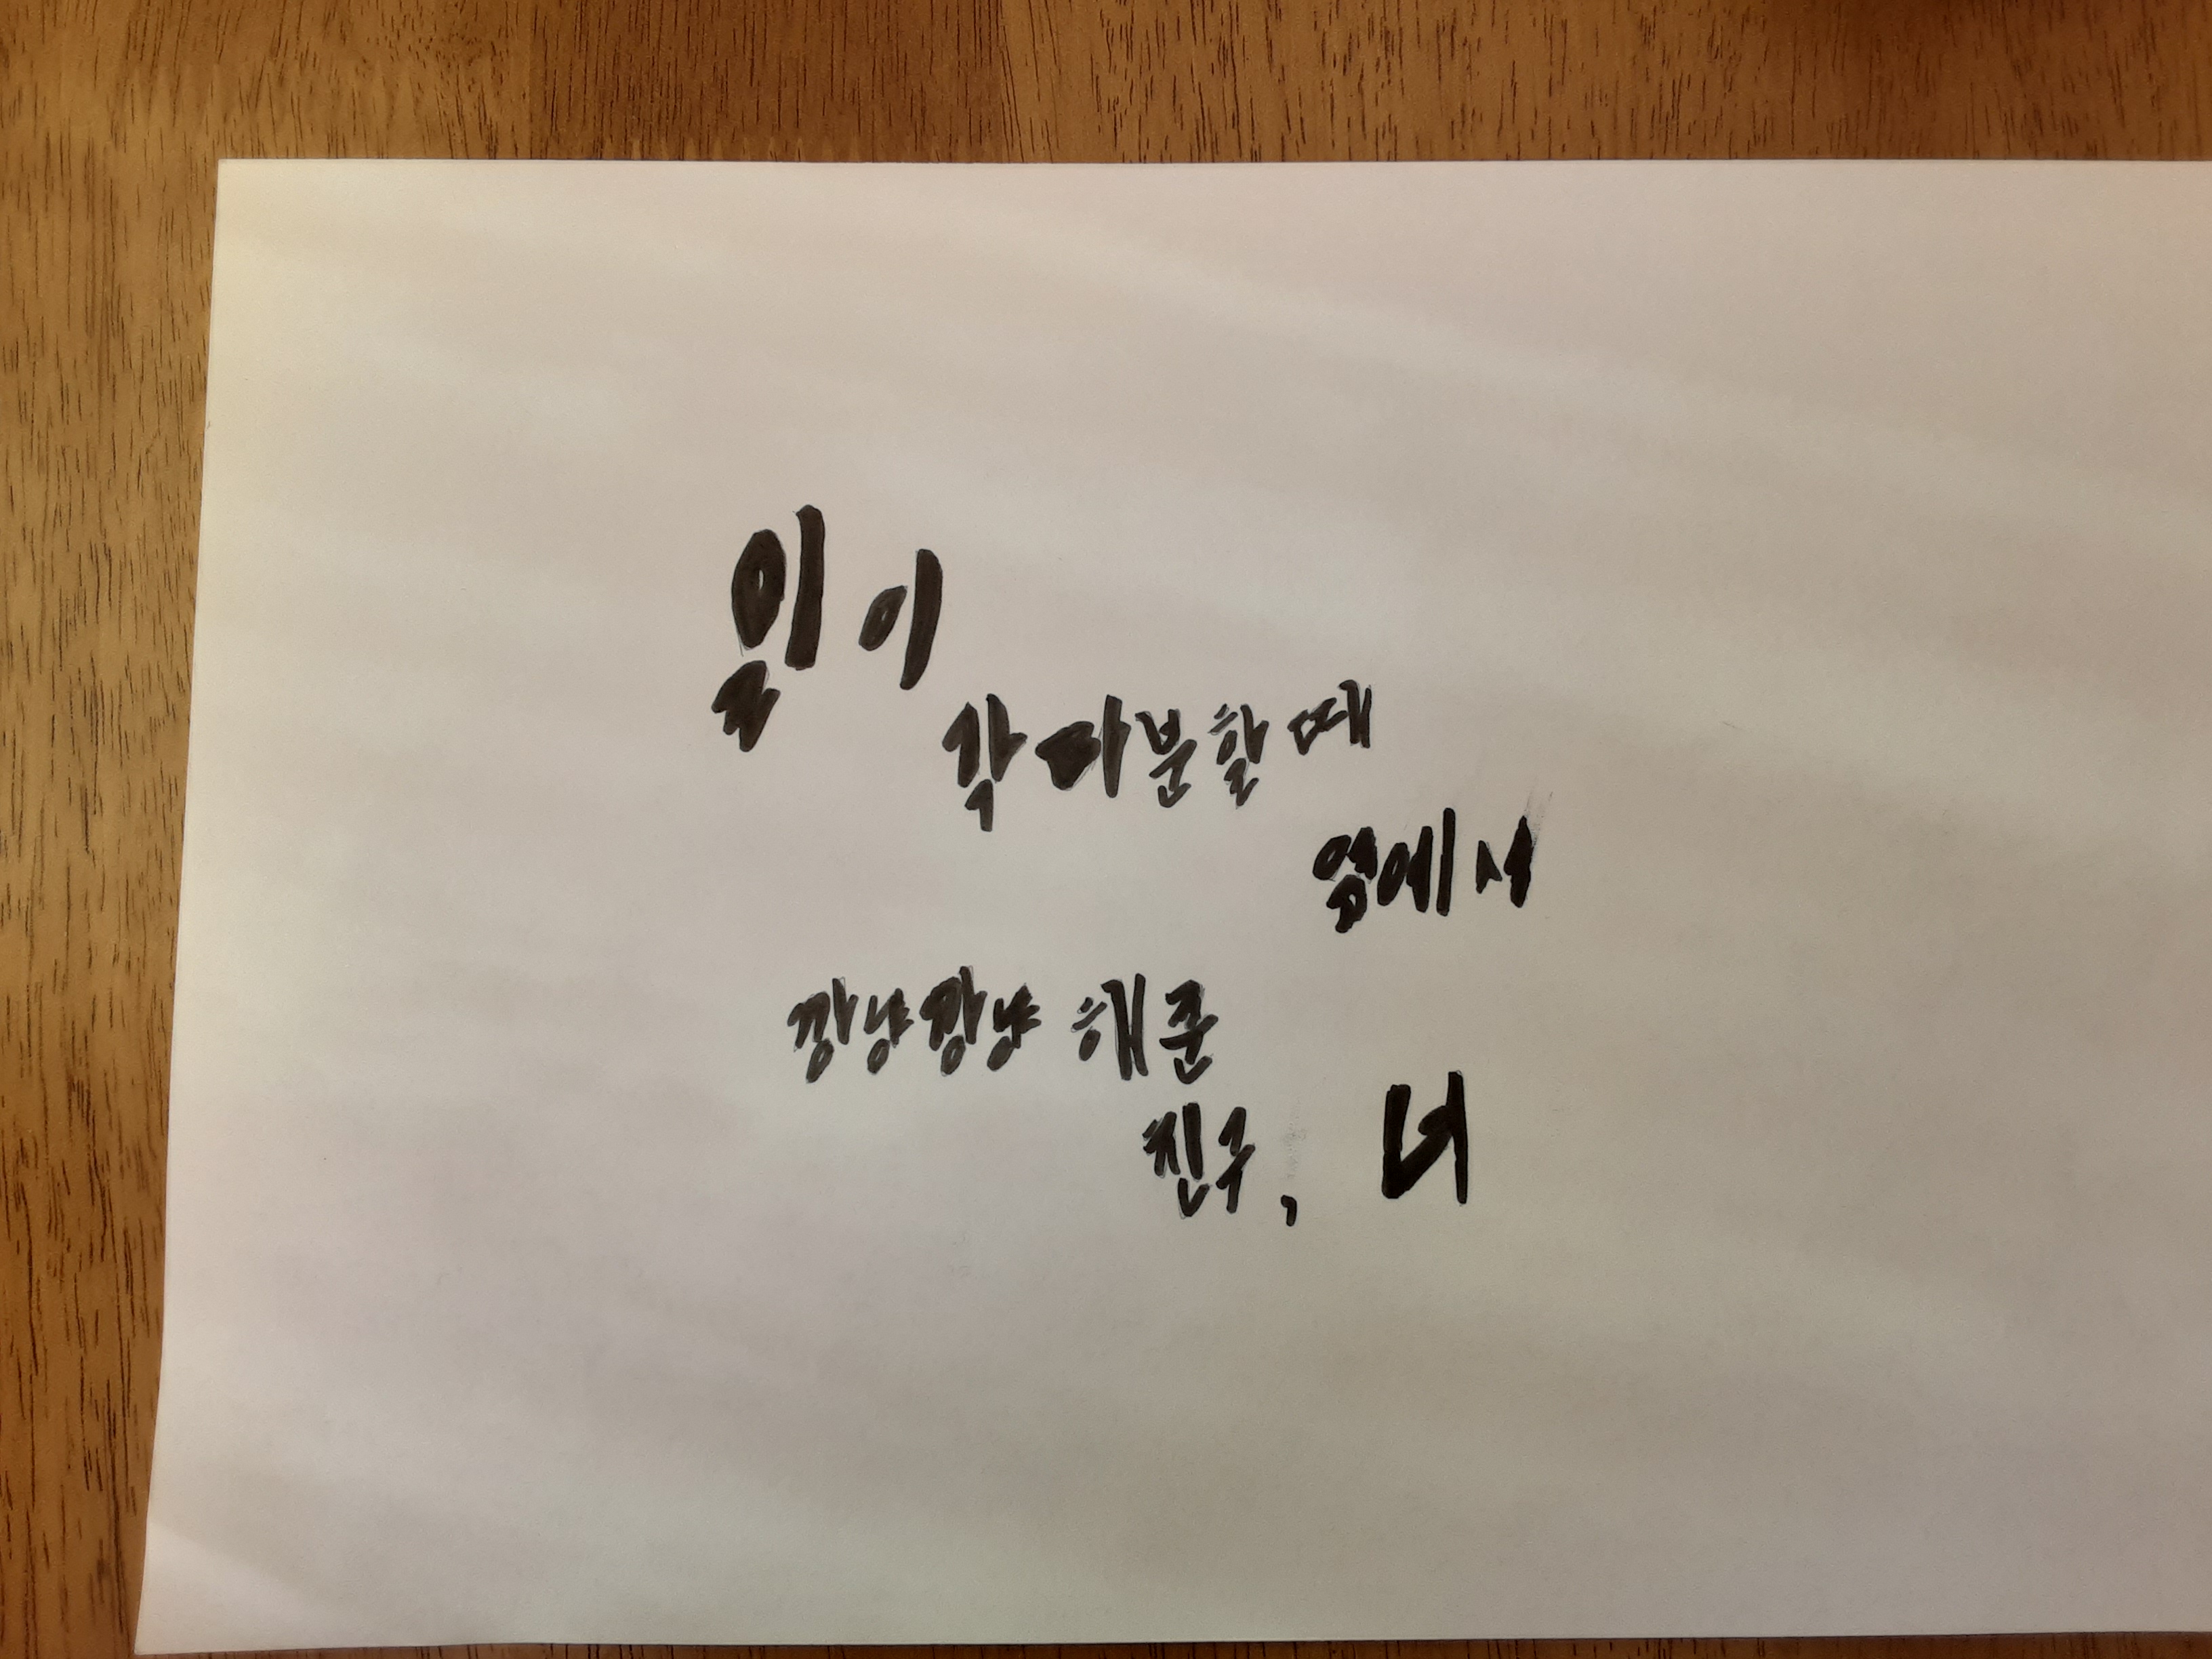 일이
각 따분할 때
옆에서
깡냥깡냥 해준
친구, 너